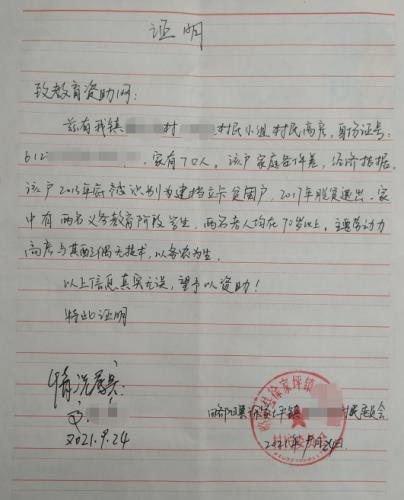 证明
致教育资助问:
兹有我镇 村 村民小组村民高 ,身份证号:
612 ,家有7口人。该户家庭条件差,经济拮据。
该户2015年底被识别为建档立卡贫困户,2017年脱贫退出。家
中有两名义务教育阶段学生,两名老人均在70岁以上。主要劳动力
高 与其配偶无技术,以务农为生。
以上信息真实无误,望予以资助!
特此证明
情况属实:
2021.9.24
略阳县徐家坪镇 村民委会
2021年9月24日
徐家坪镇